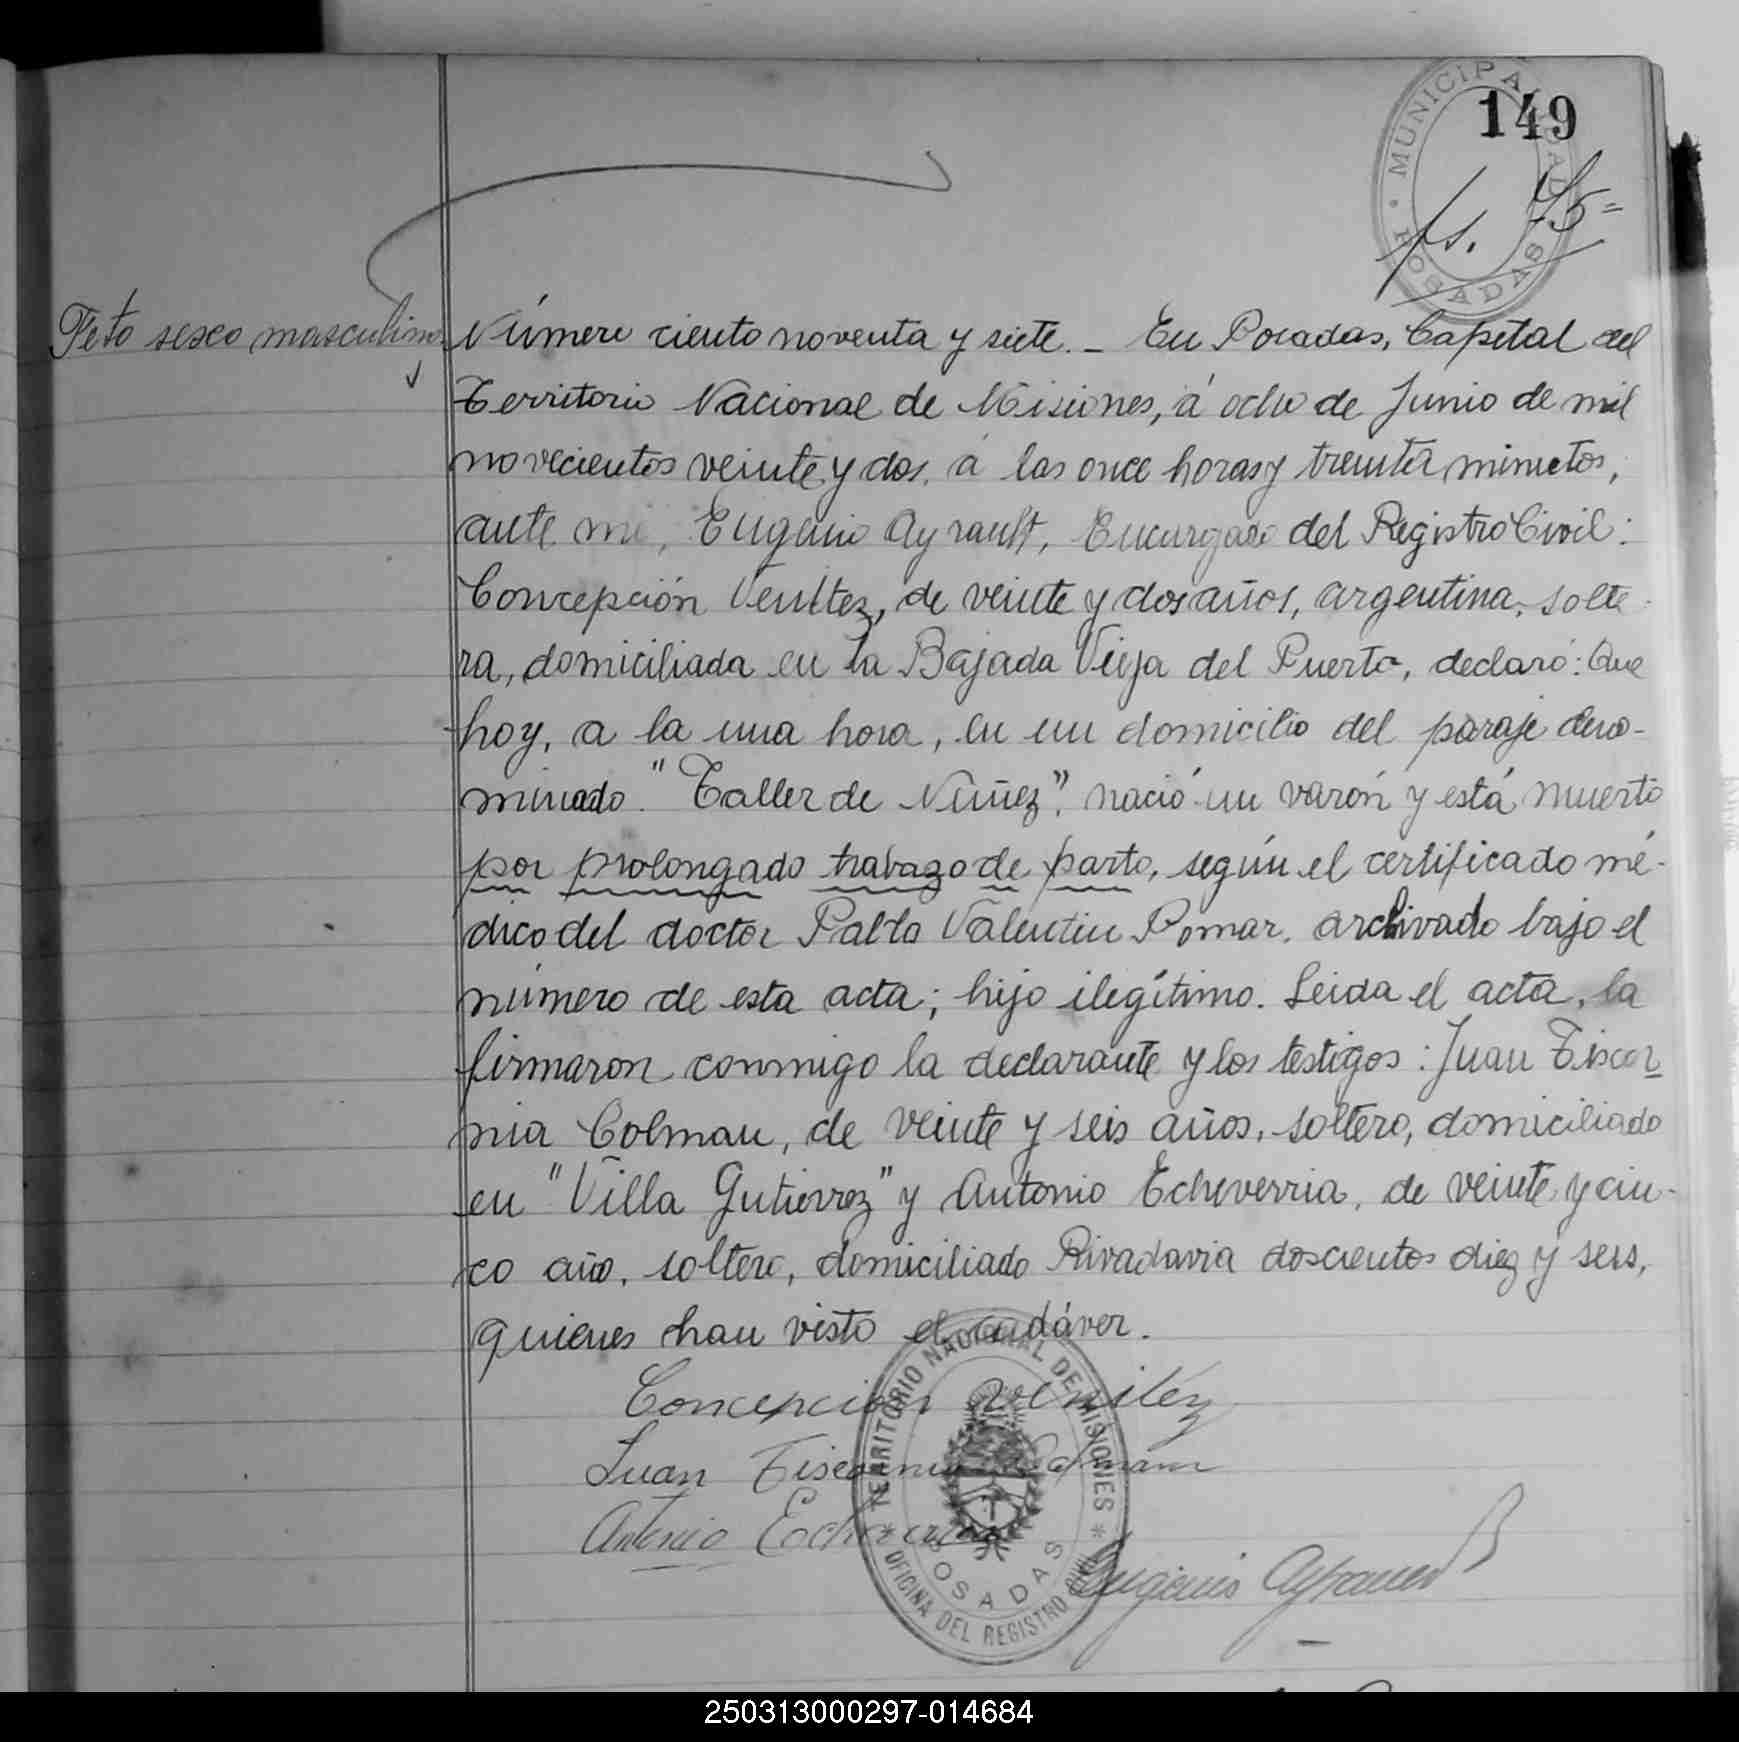 MUNICIPALIDAD
POSADAS
149
fs. 45=
Feto sexo masculino
Número ciento noventa y siete._ En Posadas, Capital del
Territorio Nacional de Misiones, á ocho de Junio de mil
novecientos veinte y dos, á las once horas y treinta minutos,
ante mi, Eugenio Ayrault, Encargado del Registro Civil:
Concepción Venítez, de veinte y dos años, argentina, solte-
ra, domiciliada en la Bajada Vieja del Puerto, declaró: Que
hoy, a la una hora, en un domicilio del paraje deno-
minado "Taller de Núñez", nació un varón y está muerto
por prolongado trabazo de parto, según el certificado mé-
dico del doctor Pablo Valentin Pomar, archivado bajo el
número de esta acta; hijo ilegítimo. Leida el acta, la
firmaron conmigo la declarante y los testigos: Juan Tiscor
nia Colman, de veinte y seis años, soltero, domiciliado
en "Villa Gutierrez" y Antonio Echeverria, de veinte y cin-
co año, soltero, domiciliado Rivadavia doscientos diez y seis,
quienes han visto el cadáver.
Concepción Venitéz
Juan Tiscornia Colman
Antonio Echeverria
Eugenio Ayrault
TERRITORIO NACIONAL DE MISIONES
OFICINA DEL REGISTRO CIVIL
POSADAS
250313000297-014684